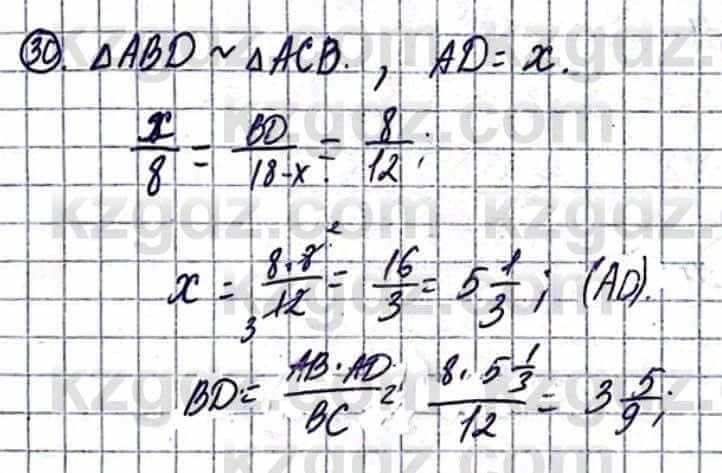 30. ΔABD ~ ΔACB. , AD = x.
x/8 = BD/18-x = 8/12;
x = 8·8/12 = 16/3 = 5 1/3; (AD).
2
3
BD = AB·AD/BC = 8·5 1/3/12 = 3 5/9;
kzgdz.com